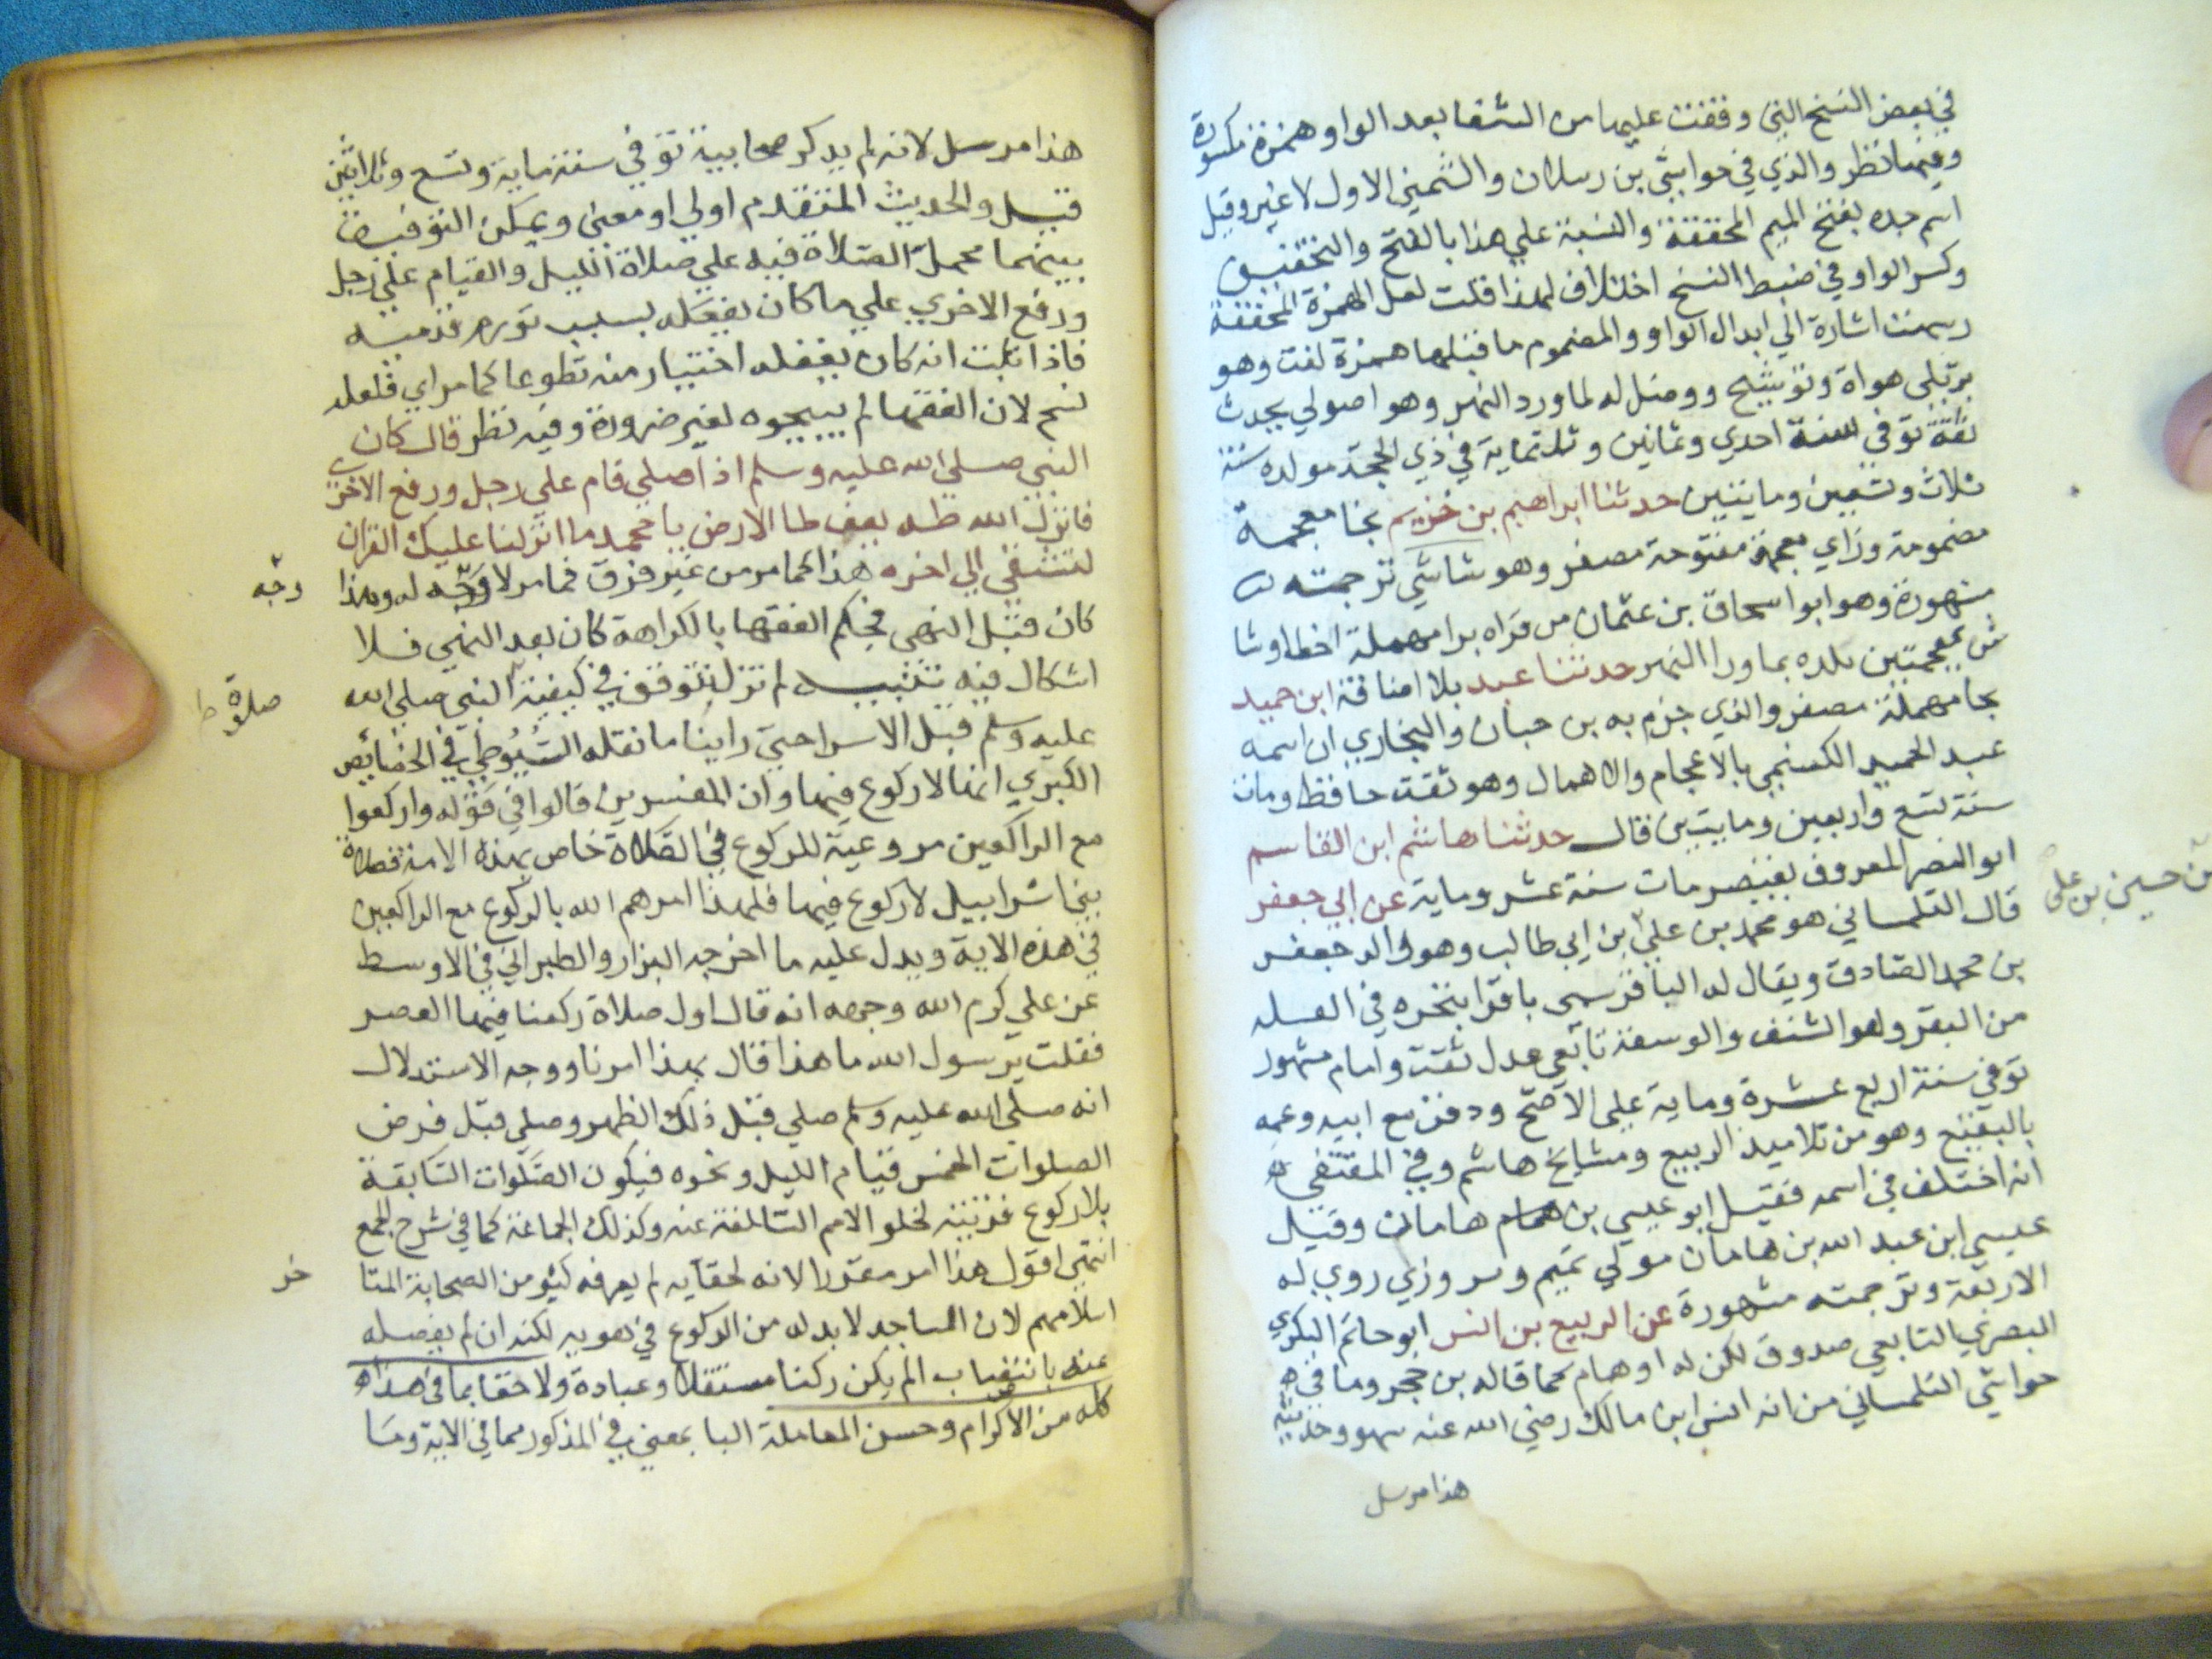 في بعض النسخ التي وقفت عليها من الشفا بعد الواو همزة مكسورة
وفيها نظر والذي في حواشي بن رسلان والشمني الاول لا غير وقيل
اسم جده بفتح الميم المخففة والنسبة علي هذا بالفتح والتخفيف
وكسر الواو وفي ضبط النسخ اختلاف لهذا قلت لعل الهمزة المخففة
رسمت اشارة الي ابدال الواو والمضموم ما قبلها همزة لغت وهو
هواة وتوشيح ومثل له لما ورد النهر وهو اصولي محدث
ثقة توفي سنة احدي وثمانين وثلاثماية في ذي الحجة مولده سنة
ثلاث وتسعين ومايتين حدثنا ابراهيم بن خزيم بخا معجمة
مضمومة وزاي معجمة مفتوحة مصغر وهو شاشي ترجمته
مشهورة وهو ابو اسحاق بن عثمان من قراه برا مهملة اخطا وشا
ش بمعجمتين بلده بما ورا النهر حدثنا عبد بلا اضافة ابن حميد
بحا مهملة مصغر والذي جزم به بن حبان والبخاري ان اسمه
عبد الحميد الكسنجي بالاعجام والاهمال وهو ثقة حافظ ومات
سنة تسع واربعين ومايتين قال حدثنا هاشم ابن القاسم
ابو النصر المعروف بقيصر مات سنة عشر وماية عن ابي جعفر
قال التلمساني هو محمد بن علي ابن ابي طالب وهو والد جعفر
بن حسين بن علي
بن محمد الصادق ويقال له الباقر سمي باقرا بتخره في العلم
من البقر وهو الشف والوسعة تابعي عدل ثقة وامام مشهور
توفي سنة اربع عشرة وماية علي الاصح ودفن مع ابيه وعمه
بالبقيع وهو من تلاميذ الربيع ومشايخ هاشم وفي المقتفي
انه اختلف في اسمه فقيل ابو عيسي بن همام هامان وقيل
عيسي ابن عبد الله بن هامان مولي تميم ومروزي روي له
الاربعة وترجمته مشهورة عن الربيع بن انس ابو حاتم البكري
البصري التابعي صدوق لكن له اوهام كما قاله بن حجر وما في
حواشي التلمساني من انه انس ابن مالك رضي الله عنه سهو وحديثه
هذا مرسل
هذا مرسل لانه لم يذكر صحابية توفي سنة ماية وتسع وثلاثين
قيل والحديث المتقدم اولي او معني ويمكن التوفيق
بينهما بحمل الصلاة فيه علي صلاة الليل والقيام علي رجل
ورفع الاخري علي ما كان يفعله بسبب تورم قدميه
فاذا ثبت انه كان يفعله اختيار منه تطوعا كما مر اي فلعله
نسخ لان الفقها لم يبيحوه لغير ضرورة وفيه نظر قال كان
النبي صلي الله عليه وسلم اذا صلي قام علي رجل ورفع الاخري
فانزل الله طه يعني طا الارض يا محمد ما انزلنا عليك القران
لتشقي الي اخره هذا كما مر من غير فرق فما مر لا وجه له وهذا
وجه
كان قبل النهي فحكم الفقها بالكراهة كان بعد النهي فلا
اشكال فيه تنبيه لم تزل نتوقف في كيفية النبي صلي الله
صلاة ط
عليه وسلم قبل الاسرا حتي راينا ما نقله السيوطي في الخصائص
الكبري انها لا ركوع فيها وان المفسرين قالوا في قوله واركعوا
مع الراكعين مروعية للركوع في الصلاة خاص بهذه الامة فصلاة
بني اسراييل لا ركوع فيها فلهذا امرهم الله بالركوع مع الراكعين
في هذه الاية ويدل عليه ما اخرجه البزار والطبراني في الاوسط
عن علي كرم الله وجهه انه قال اول صلاة ركعنا فيها العصر
فقلت يرسول الله ما هذا قال بهذا امرنا ووجه الاستدلال
انه صلي الله عليه وسلم صلي قبل ذلك الظهر وصلي قبل فرض
الصلوات الخمس قيام الليل ونحوه فيكون الصلوات السابقة
بلا ركوع قرينة لخلو الامم السالفة عنه وكذلك الجماعة كما في شرح الجمع
انتهي اقول هذا امر مقررا لانه لحقايه لم يعرفه كثير من الصحابة المتا
خر
اسلامهم لان الساجد لا بد له من الركوع في هويه لكنه ان لم يفصله
عنه بانتصاب الم يكن ركنا مستقلا وعبادة ولا خفا بما في هذا
كله من الاكرام وحسن المعاملة البا بمعني في المذكور مما في الاية وما